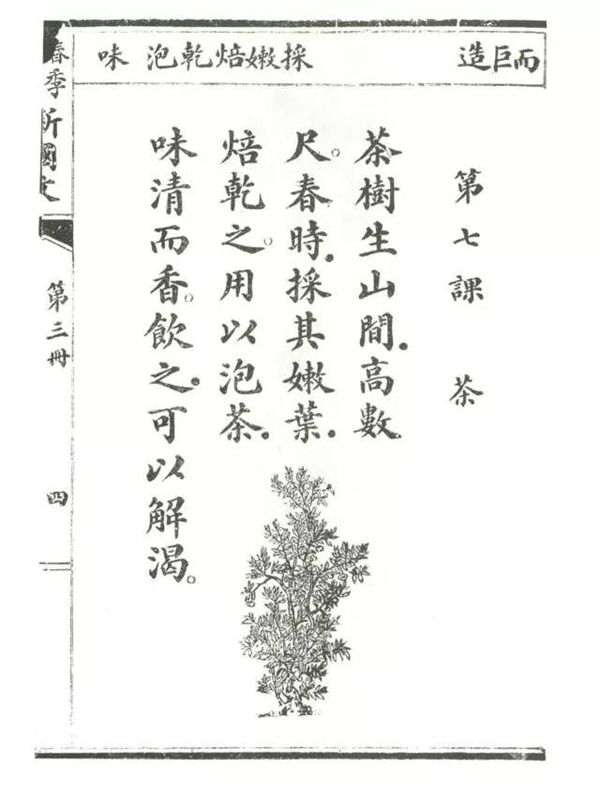 而巨造 採嫩焙乾泡味
第七課 茶
茶樹生山間。高數
尺。春時。採其嫩葉。
焙乾之。用以泡茶。
味清而香。飲之。可以解渴。
春季新國文
第三冊
四